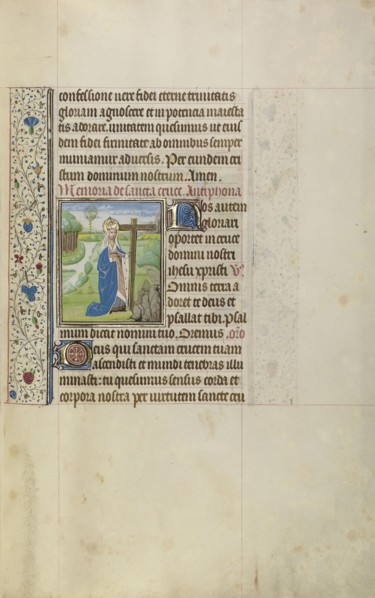 confessione uere fidei eterne trinitatis
gloriam agnoscere et in potencia maiesta
tis adorare unitatem quesumus ut eius
dem fidei firmitate ab omnibus semper
muniamur aduersis. Per eundem cri
stum dominum nostrum. Amen.
Memoria de sancta cruce. Antiphona
Nos autem
gloriari
oportet in cruce
domini nostri
ihesu xpristi V
Omnis terra a
doret te deus et
psallat tibi. psal
mum dicat nomini tuo. Oremus. oro
Deus qui sanctam crucem tuam
ascendisti et mundi tenebras illu
minasti: tu quesumus sensus corda et
corpora nostra per uirtutem sancte cru